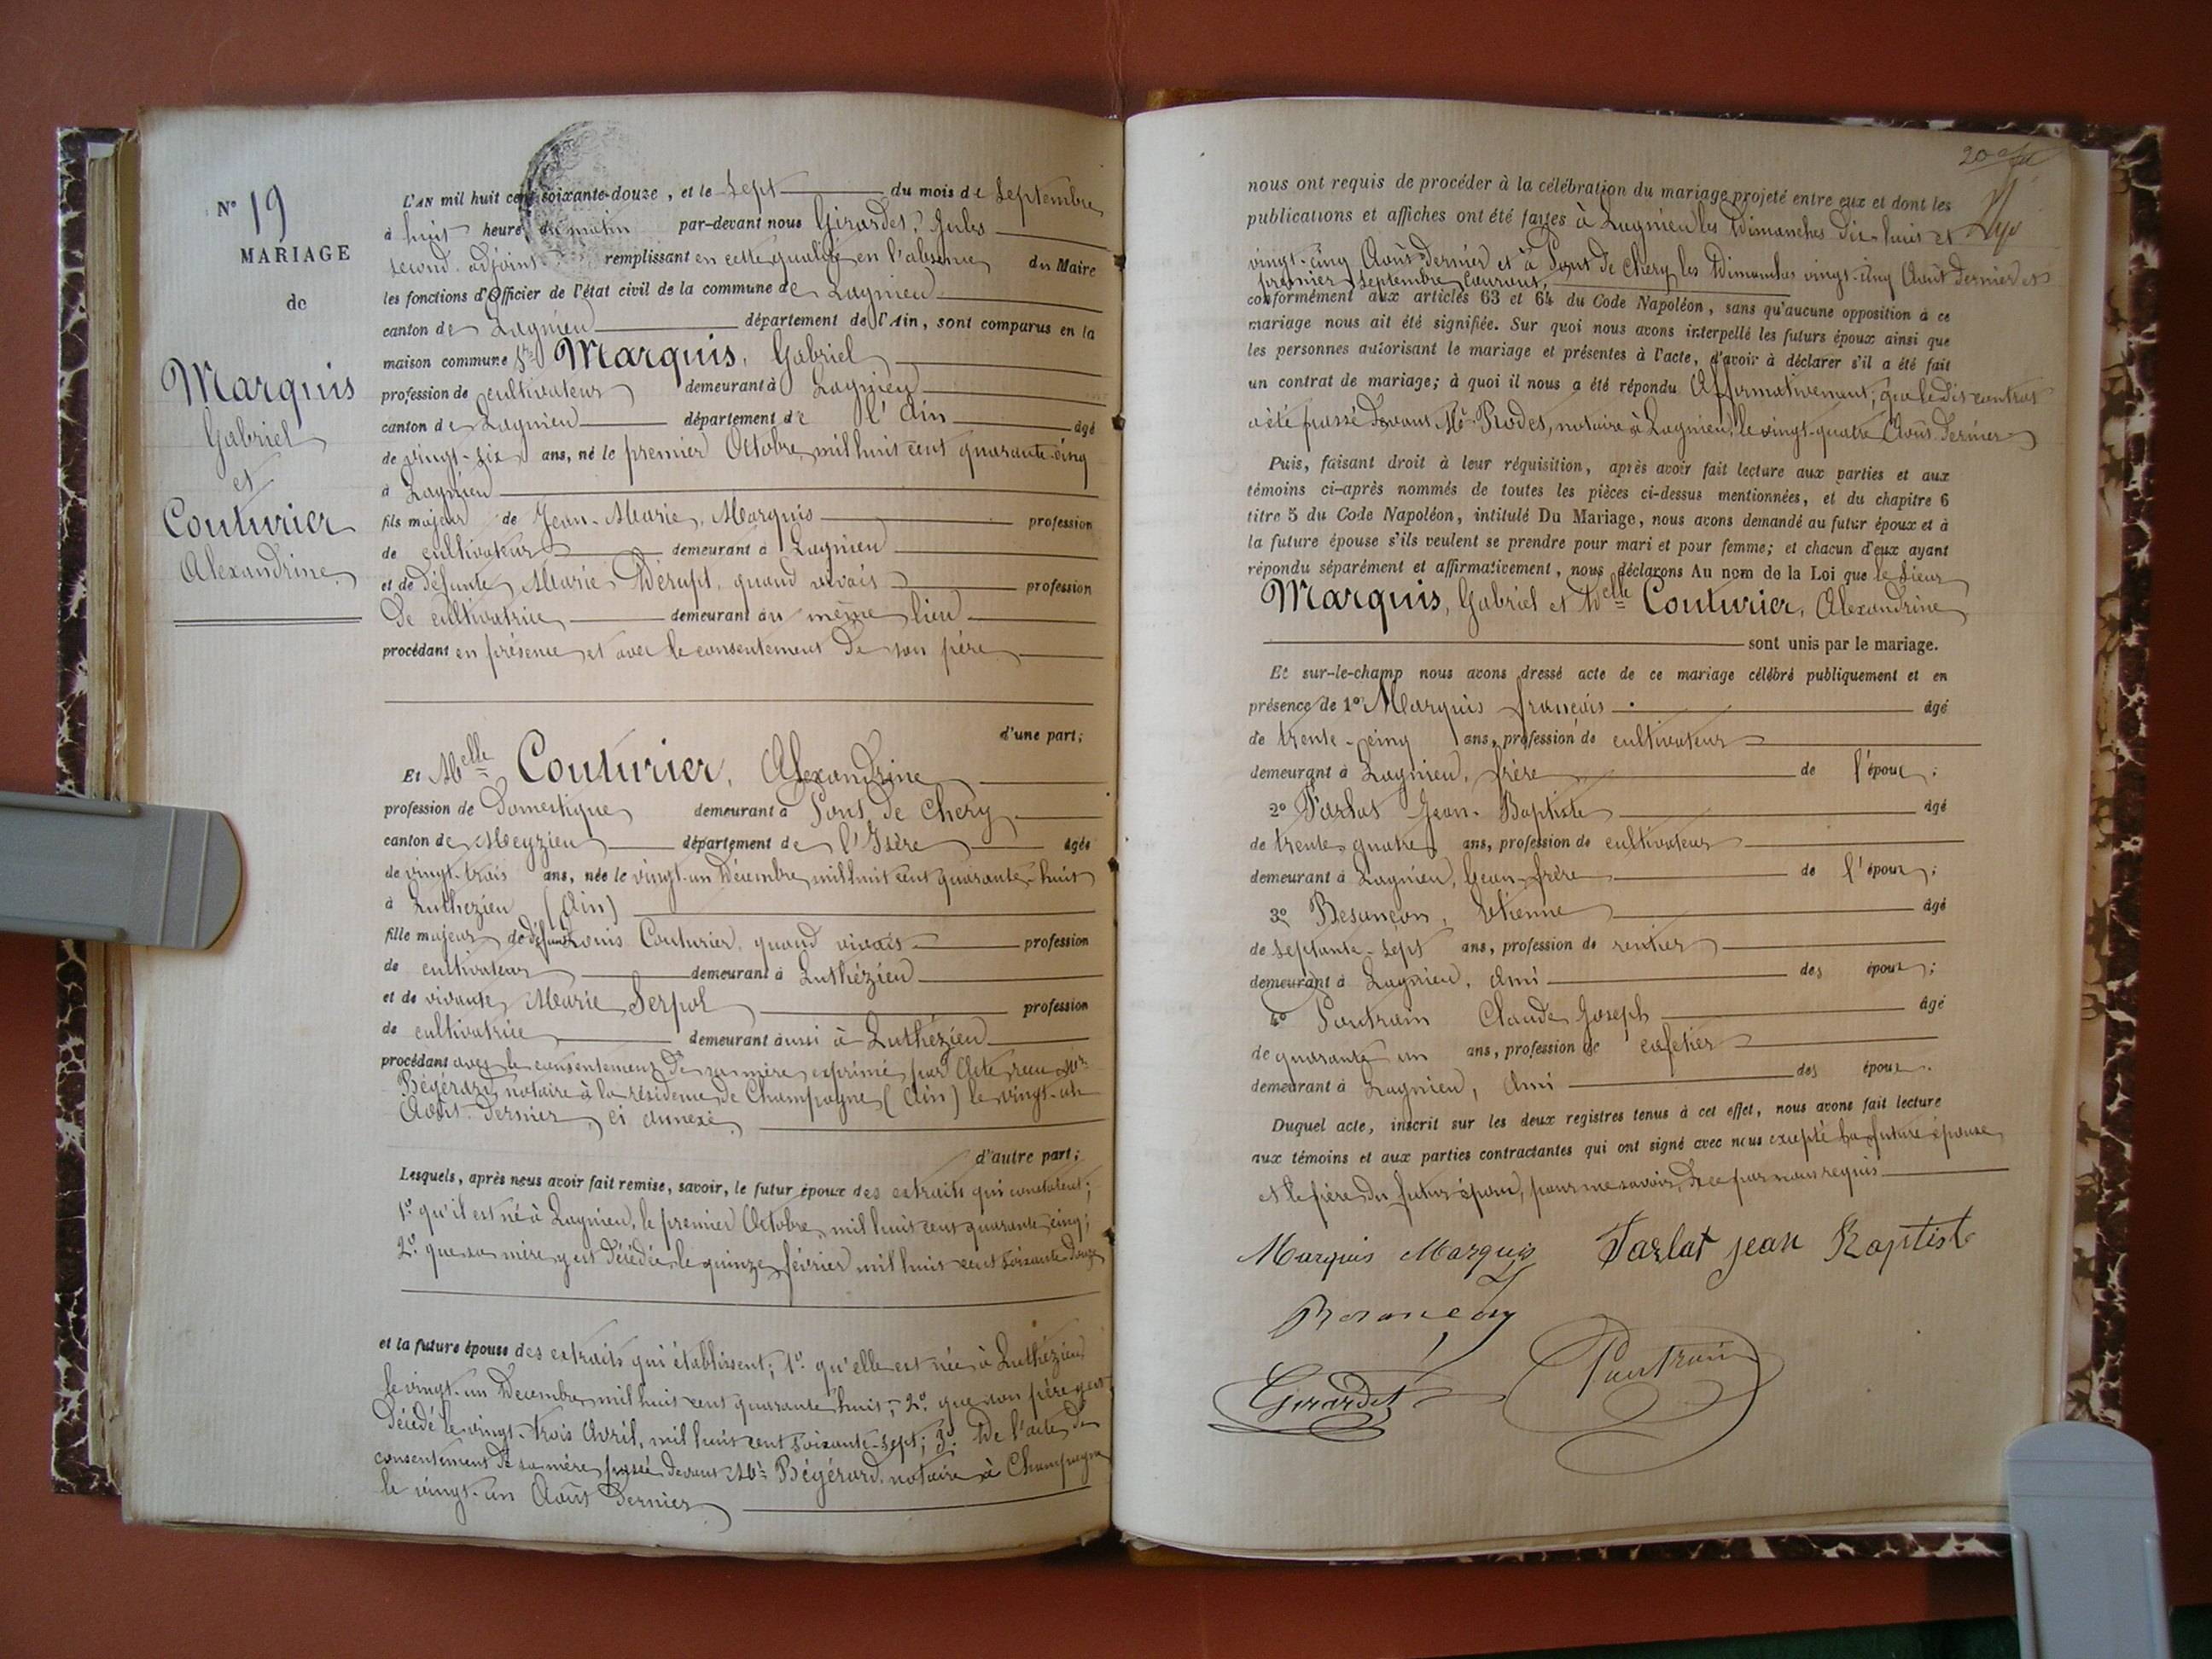 N° 19
MARIAGE
de
Marquis
Gabriel
et
Couturier
Alexandrine
L'AN mil huit cent soixante-douze, et le sept du mois de Septembre
à huit heure, du matin par-devant nous Girardet, Jules
second adjoint remplissant en cette qualité en l'absence du Maire
les fonctions d'Officier de l'état civil de la commune de Lagnieu
canton de Lagnieu département de l'Ain, sont comparus en la
maison commune Sr Marquis, Gabriel
profession de cultivateur demeurant à Lagnieu
canton de Lagnieu département de l'Ain âgé
de vingt-six ans, né le premier Octobre mil huit cent quarante-cinq
à Lagnieu
fils majeur de Jean-Marie, Marquis profession
de cultivateur demeurant à Lagnieu
et de défunte Marie Dérupt, quand vivait profession
de cultivatrice demeurant au même lieu
procédant en présence et avec le consentement de son père
d'une part;
Et Melle Couturier, Alexandrine
profession de Domestique demeurant à Pont de Chery
canton de Meyzieu département de l'Isère âgée
de vingt-trois ans, née le vingt-un Décembre mil huit cent quarante-huit
à Luthezieu (Ain)
fille majeure de défunt Louis Couturier, quand vivait profession
de cultivateur demeurant à Luthézieu
et de vivante Marie Serpol profession
de cultivatrice demeurant aussi à Luthézieu
procédant avec le consentement de sa mère exprimé par Acte reçu Me
Bégérard, notaire à la résidence de Champagne (Ain) le vingt-un
Août dernier ci annexé
d'autre part;
Lesquels, après nous avoir fait remise, savoir, le futur époux des extraits qui constatent;
1° qu'il est né à Lagnieu, le premier Octobre mil huit cent quarante cinq;
2° que sa mère y est décédée le quinze février mil huit cent soixante douze
et la future épouse des extraits qui établissent; 1° qu'elle est née à Luthézieu
le vingt-un Décembre mil huit cent quarante huit; 2° que son père y est
décédé le vingt-trois Avril, mil huit cent soixante-sept; 3° De l'acte de
consentement de sa mère passé devant Me Bégérard, notaire à Champagne
le vingt-un Août dernier
nous ont requis de procéder à la célébration du mariage projeté entre eux et dont les
publications et affiches ont été faites à Lagnieu les Dimanches dix-huit et
vingt-cinq Août dernier et à Pont de Chery les Dimanches vingt-cinq Août dernier et
premier Septembre courant,
conformément aux articles 63 et 64 du Code Napoléon, sans qu'aucune opposition à ce
mariage nous ait été signifiée. Sur quoi nous avons interpellé les futurs époux ainsi que
les personnes autorisant le mariage et présentes à l'acte, d'avoir à déclarer s'il a été fait
un contrat de mariage; à quoi il nous a été répondu Affirmativement, que ledit contrat
a été passé devant Me Rodes, notaire à Lagnieu, le vingt-quatre Août dernier
Puis, faisant droit à leur réquisition, après avoir fait lecture aux parties et aux
témoins ci-après nommés de toutes les pièces ci-dessus mentionnées, et du chapitre 6
titre 5 du Code Napoléon, intitulé Du Mariage, nous avons demandé au futur époux et à
la future épouse s'ils veulent se prendre pour mari et pour femme; et chacun d'eux ayant
répondu séparément et affirmativement, nous déclarons Au nom de la Loi que le Sieur
Marquis, Gabriel et Delle Couturier, Alexandrine
sont unis par le mariage.
Et sur-le-champ nous avons dressé acte de ce mariage célébré publiquement et en
présence de 1° Marquis françois âgé
de trente-cinq ans, profession de cultivateur
demeurant à Lagnieu, frère de l'époux;
2° Tarlat Jean-Baptiste âgé
de trente quatre ans, profession de cultivateur
demeurant à Lagnieu, beau-frère de l'époux;
3° Besançon, Etienne âgé
de septante-sept ans, profession de rentier
demeurant à Lagnieu, ami des époux;
4° Poutrain Claude Joseph âgé
de quarante un ans, profession de cafetier
demeurant à Lagnieu, ami des époux.
Duquel acte, inscrit sur les deux registres tenus à cet effet, nous avons fait lecture
aux témoins et aux parties contractantes qui ont signé avec nous excepté la future épouse
et le père du futur époux, pour ne savoir, de ce par nous requis
Marquis Marquis Tarlat jean Baptiste
Besançon
Girardet Poutrain